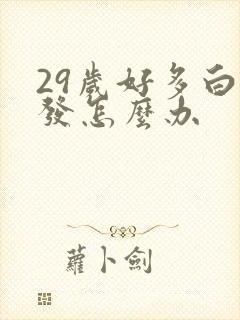 29歲好多白
發怎麼办
蘿卜劍